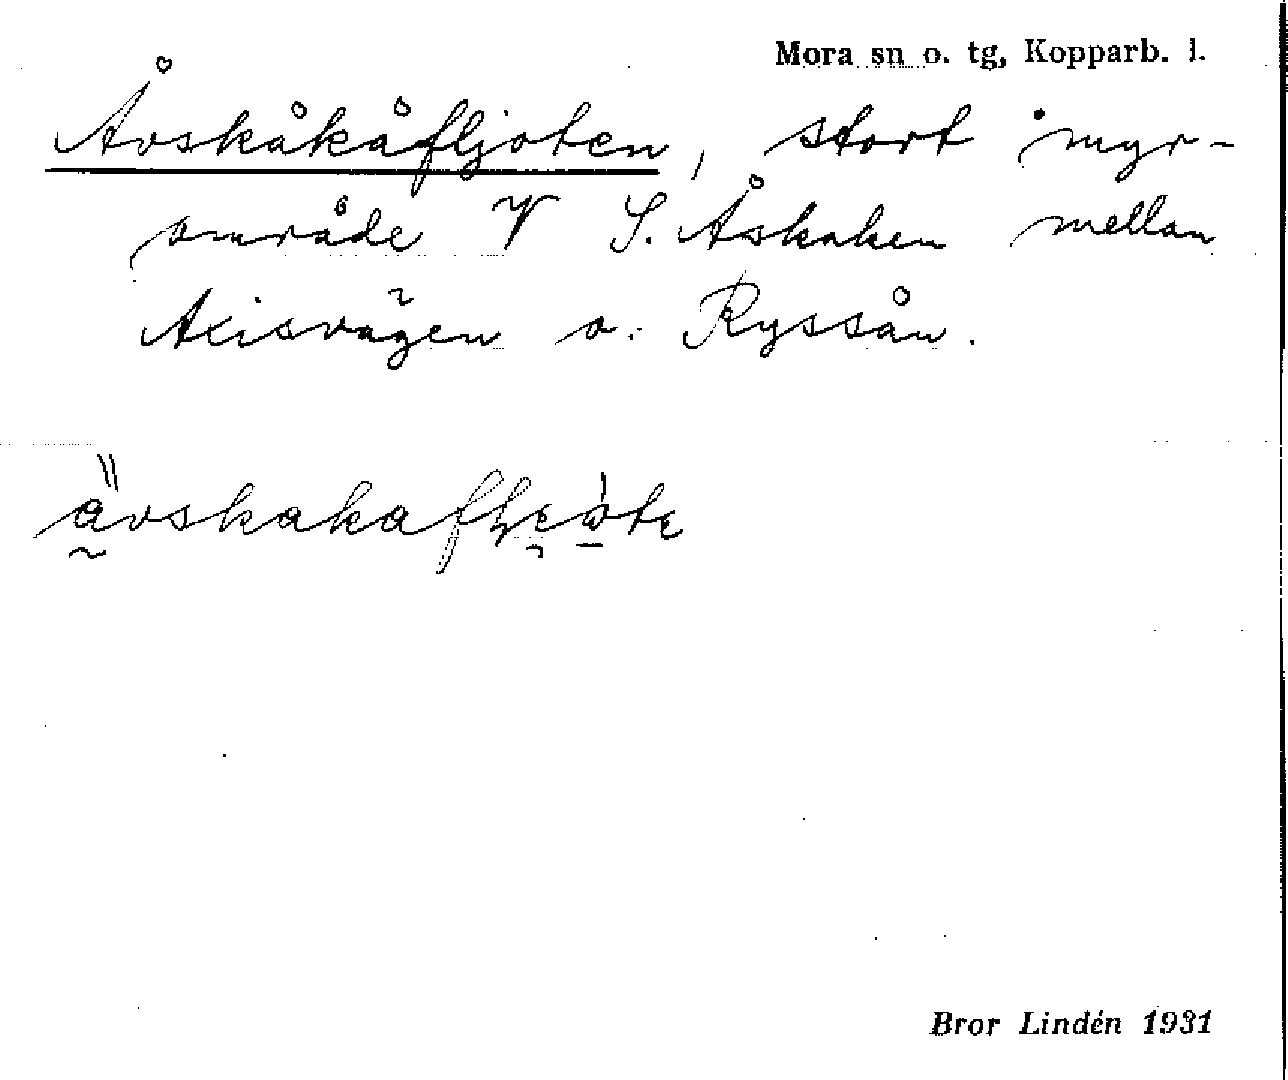 Mora sn o. tg, Kopparb. l.
Åvskåkåfljoten, stort myr-
område V S. Åskaken mellan
Axisvägen o. Ryssån.
Bror Lindén 1931